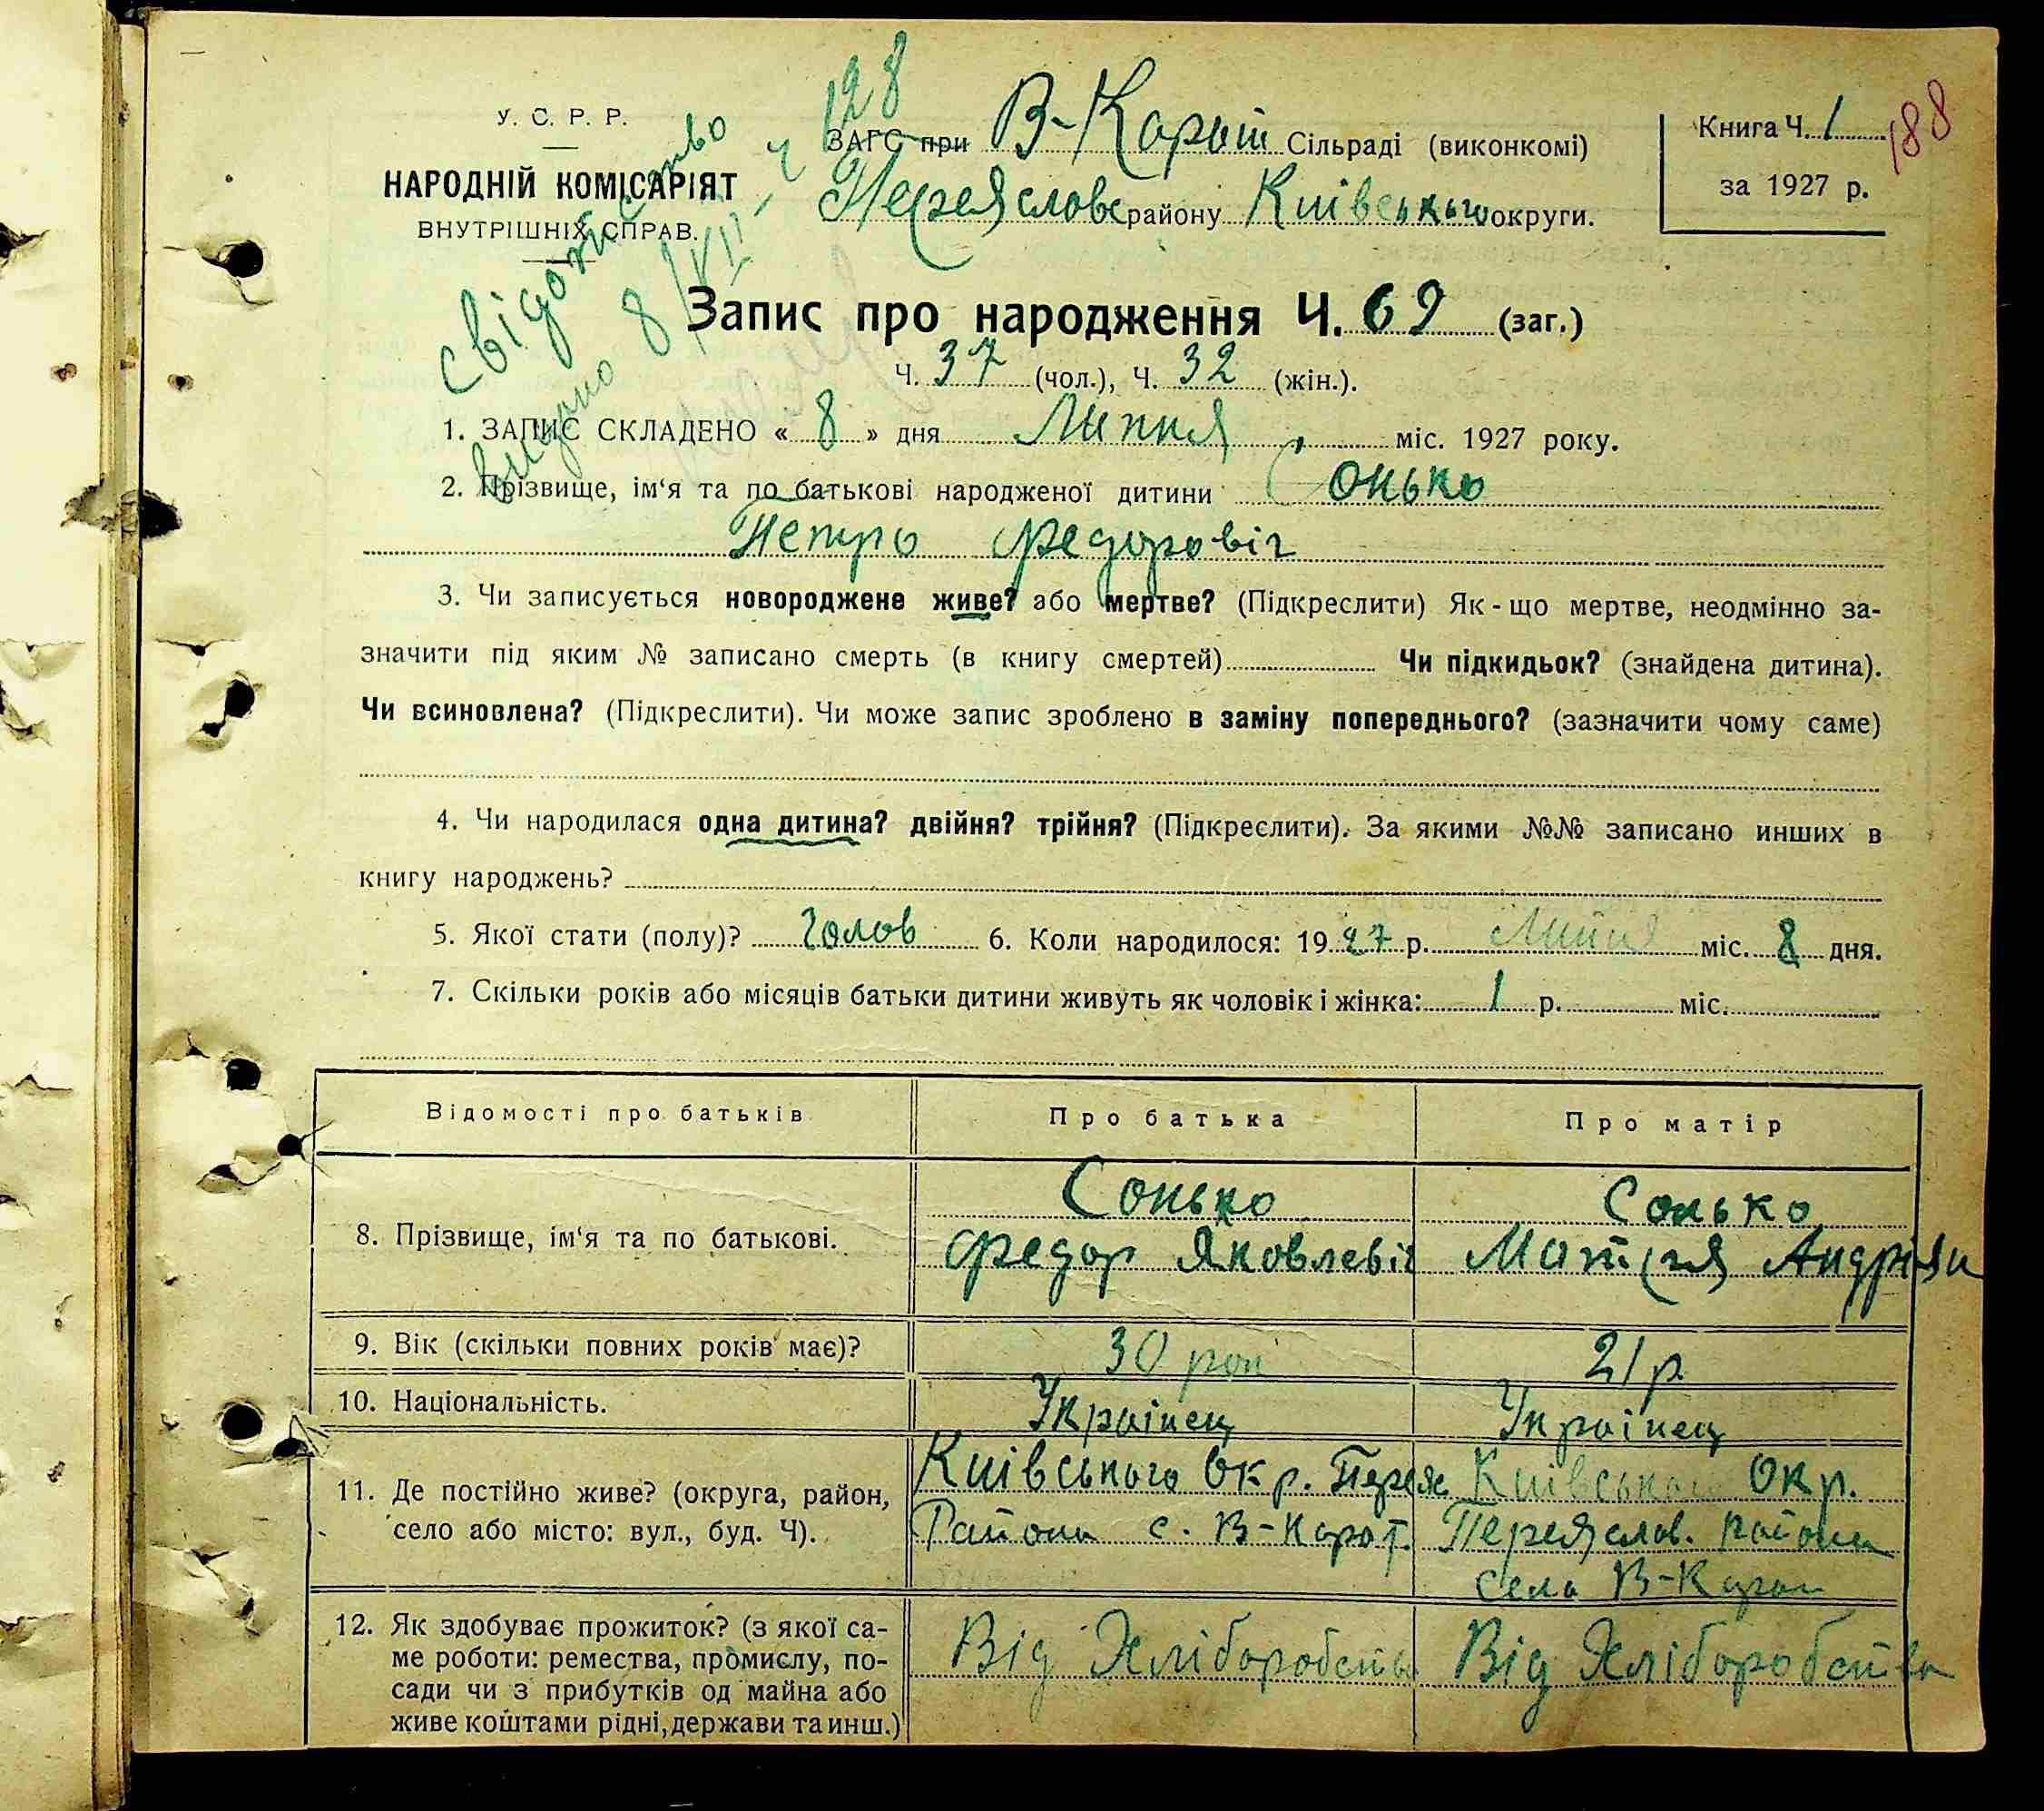 У. С. Р. Р.
НАРОДНІЙ КОМІСАРІЯТ
ВНУТРІШНІХ СПРАВ.
Свідотство
видано 8/XII- Ч 128
ЗАГС при В-Карат Сільраді (виконкомі)
Переяславс району Київського округи.
Книга Ч. 1
за 1927 р.
188
Запис про народження Ч. 69 (заг.)
Ч. 37 (чол.), Ч. 32 (жін.).
1. ЗАПИС СКЛАДЕНО « 8 » дня Липня міс. 1927 року.
2. Прізвище, ім‘я та по батькові народженої дитини Сонько
Петро Федоровіч
3. Чи записується новороджене живе? або мертве? (Підкреслити) Як-що мертве, неодмінно за-
значити під яким № записано смерть (в книгу смертей) Чи підкидьок? (знайдена дитина).
Чи всиновлена? (Підкреслити). Чи може запис зроблено в заміну попереднього? (зазначити чому саме)
4. Чи народилася одна дитина? двійня? трійня? (Підкреслити). За якими №№ записано инших в
книгу народжень?
5. Якої стати (полу)? Чолов 6. Коли народилося: 1927 р. Липня міс. 8 дня.
7. Скільки років або місяців батьки дитини живуть як чоловік і жінка: 1 р. міс.
Відомості про батьків Про батька Про матір
8. Прізвище, ім‘я та по батькові.
Сонько
Федор Яковлевіч
Сонько
9. Вік (скільки повних років має)? 30 рок 21 р.
10. Національність. Украінец Украінец
11. Де постійно живе? (округа, район,
село або місто: вул., буд. Ч).
Київського Окр. Перея
Района с. В-Карат.
Київського Окр.
Переяслав. района
села В-Карат
12. Як здобуває прожиток? (з якої са-
ме роботи: ремества, промислу, по-
сади чи з прибутків од майна або
живе коштами рідні, держави та инш.)
Від Хліборобства
Від Хліборобства